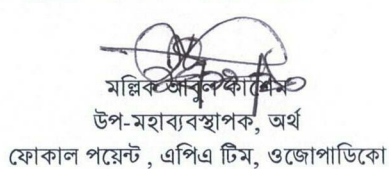 মল্লিক আবুল কাশেম
উপ-মহাব্যবস্থাপক, অর্থ
ফোকাল পয়েন্ট , এপিএ টিম, ওজোপাডিকো